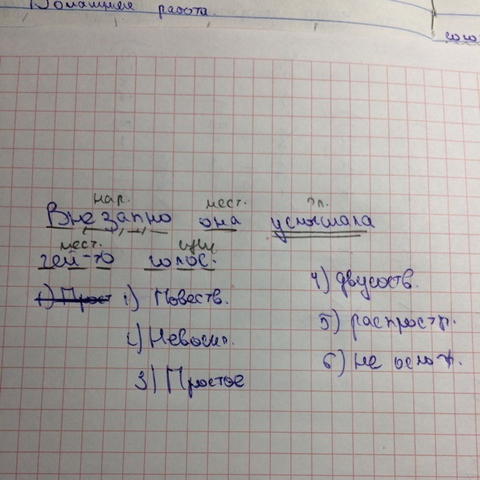 Домашняя работа.
нар. мест. гл.
Внезапно она услышала
мест. сущ.
чей-то голос.
1) Прост 1) Повеств. 4) двусоств.
2) Невоскл. 5) распростр.
3) Простое 6) не ослож.